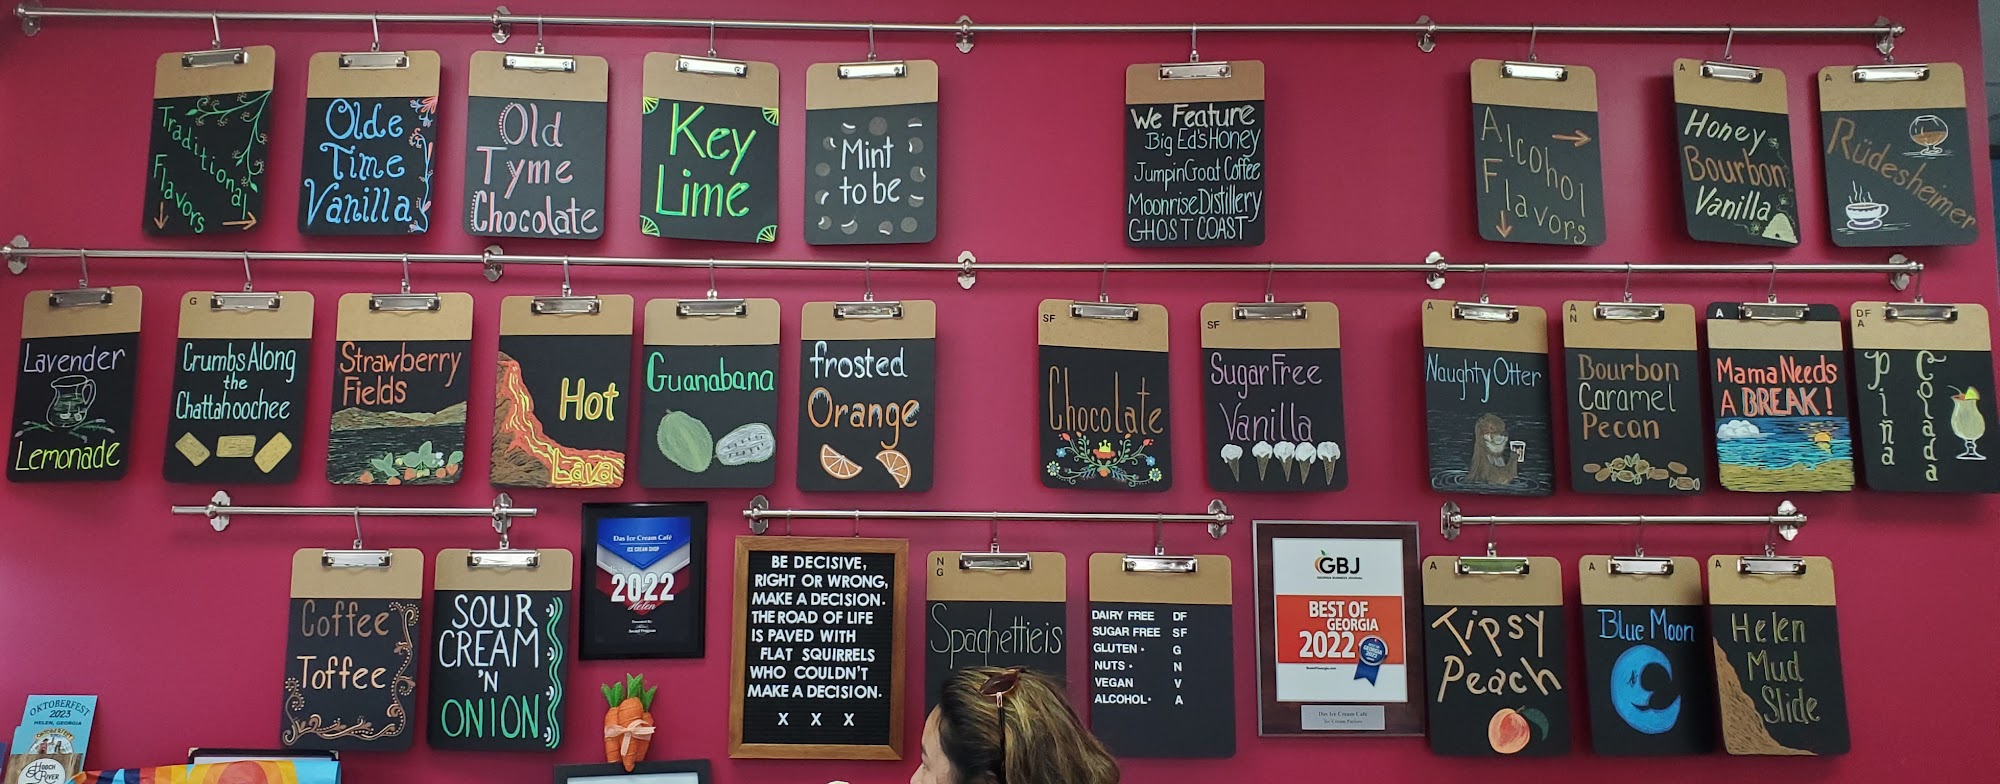 Traditional
Flavors
Olde
Time
Vanilla
Old
Tyme
Chocolate
Key
Lime
Mint
to be
We Feature
Big Ed's Honey
Jumpin Goat Coffee
Moonrise Distillery
GHOST COAST
Alcohol
Flavors
A
Honey
Bourbon
Vanilla
A
Rüdesheimer
Lavender
Lemonade
G
Crumbs Along
the
Chattahoochee
Strawberry
Fields
Hot
Lava
Guanabana
frosted
Orange
SF
Chocolate
SF
Sugar Free
Vanilla
A
Naughty Otter
A
N
Bourbon
Caramel
Pecan
A
Mama Needs
A BREAK!
DF
A
Piña
Colada
Coffee
Toffee
SOUR
CREAM
'N
ONION
Das Ice Cream Café
ICE CREAM SHOP
2022
Helen
BE DECISIVE,
RIGHT OR WRONG,
MAKE A DECISION.
THE ROAD OF LIFE
IS PAVED WITH
FLAT SQUIRRELS
WHO COULDN'T
MAKE A DECISION.
X X X
N
G
Spaghettieis
DAIRY FREE DF
SUGAR FREE SF
GLUTEN • G
NUTS • N
VEGAN V
ALCOHOL • A
GBJ
GEORGIA BUSINESS JOURNAL
BEST OF
GEORGIA
2022
Das Ice Cream Café
Ice Cream Parlors
A
Tipsy
Peach
A
Blue Moon
A
Helen
Mud
Slide
OKTOBERFEST
2023
HELEN, GEORGIA
HOOCH
RIVER